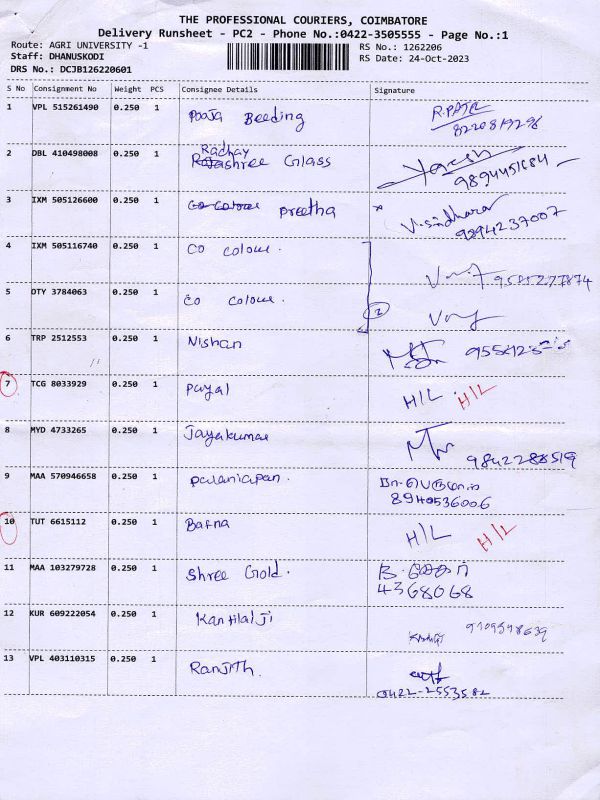 THE PROFESSIONAL COURIERS, COIMBATORE
Delivery Runsheet - PC2 - Phone No.:0422-3505555 - Page No.:1
Route: AGRI UNIVERSITY -1
Staff: DHANUSKODI
DRS No.: DCJB126220601
RS No.: 1262206
RS Date: 24-Oct-2023
S No Consignment No Weight PCS Consignee Details Signature
1 VPL 515261490 0.250 1 Pooja Beeding
8220819296
2 DBL 410498008 0.250 1 Radhay
shree Glass
9894451684
3 IXM 505126600 0.250 1 Co Colour preetha V.sindhara
9294237007
4 IXM 505116740 0.250 1 CO colour.
5 DTY 3784063 0.250 1 Co colour. 2
6 TRP 2512553 0.250 1 Nishan
7 TCG 8033929 0.250 1 Payal H/L. H/L
8 MYD 4733265 0.250 1 Jayakumar
9842288519
9 MAA 570946658 0.250 1 palaniapan.
8940536006
10 TUT 6615112 0.250 1 Bafna H/L H/L
11 MAA 103279728 0.250 1 Shree Gold.
4368068
12 KUR 609222054 0.250 1 Kanthilal Ji
13 VPL 403110315 0.250 1 Ranjith.
0422-2553582